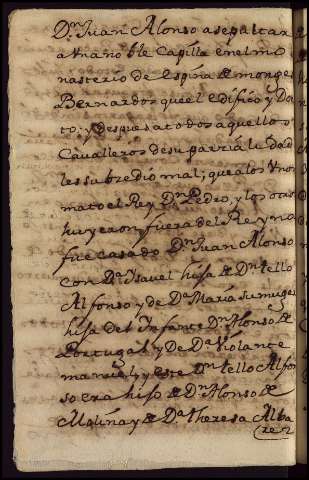 Dn. Juan Alonso a sepultar
a Una noble Capilla en el mo
nasterio de Espina de monges
Bernardos que el edificó y Do
tó; y despues a todos aquellos
Cavalleros de su patria lealdad
les subcedio mal; que a los Unos
mato el Rey Dn. Pedro, y los otros
huyeron fuera del Reyno
fue casado Dn. Juan Alonso
con Da. Ysavel hija de Dn. tello
Alfonso y de Da. Maria su muger
hija del Ynfante Dn. Alonso de
Portugal y de Da. Violante
manuel, y este Dn. tello Alfon
so era hijo de Dn. Alonso de
Molina y de Da. Theresa Alba
rez